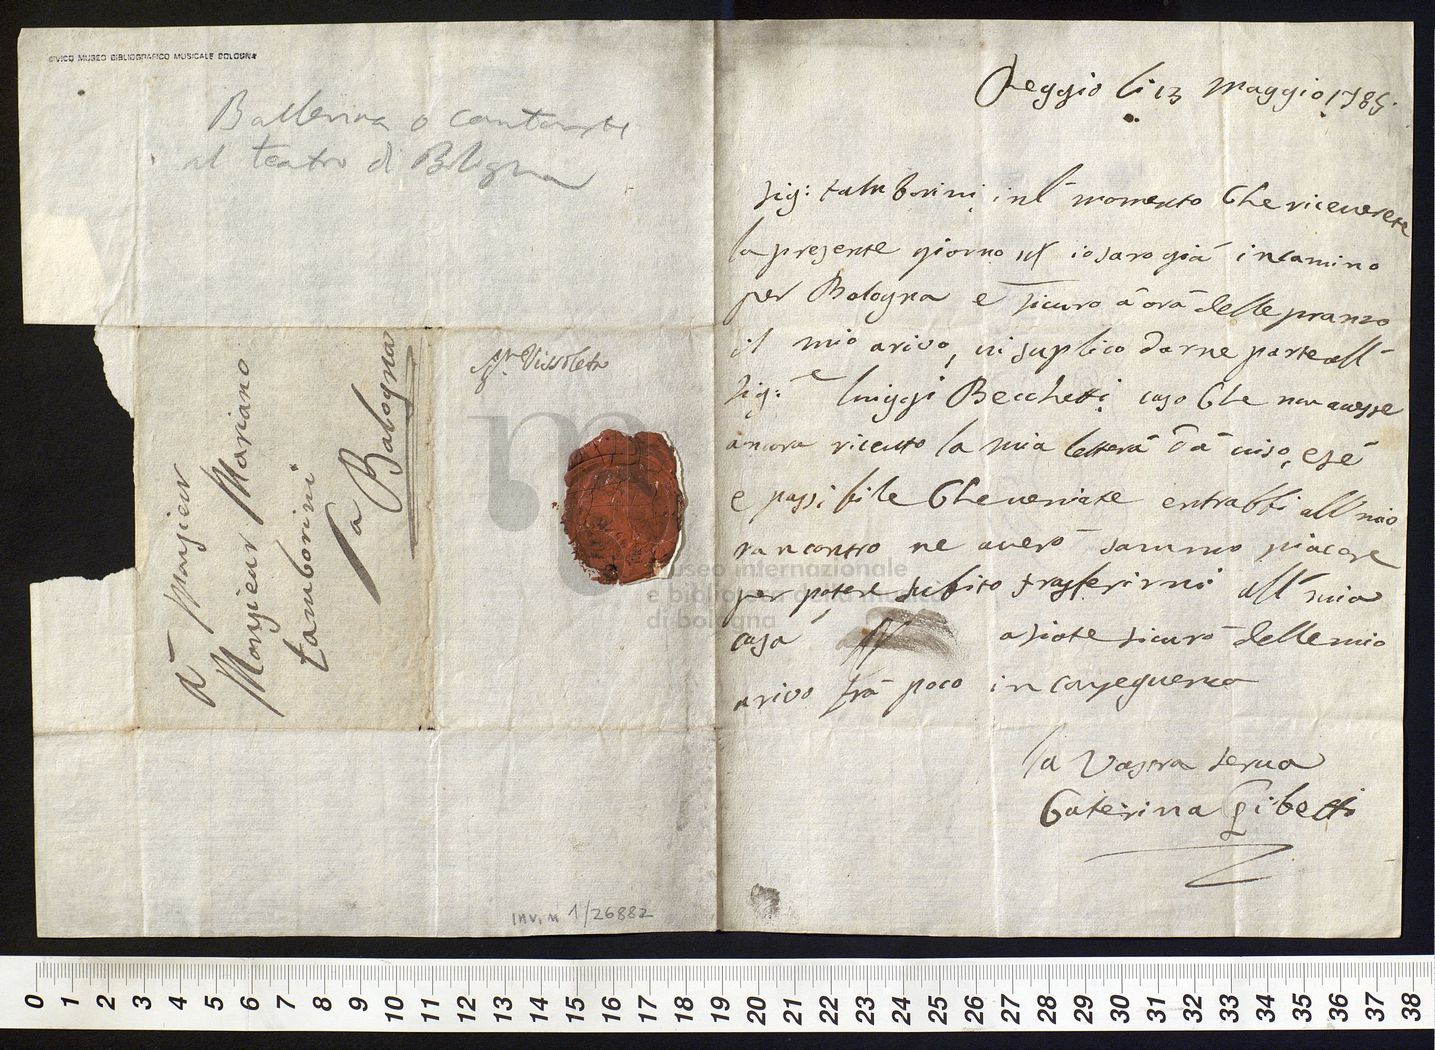 CIVICO MUSEO BIBLIOGRAFICO MUSICALE BOLOGNA
Ballerina o cantante
al teatro di Bologna
Reggio li 13 Maggio 1785.
Sig: tamborini in l' momento Che riceverete
la presente giorno io saro già in camino
per Bologna e sicuro à orà delle pranzo
il mio arivo, vi suplico darne parte all
Sig:e luiggi Becchetti caso Che non avesse
ancora riceuto la mia letterà dà viso, e sé
e possibile Che veniate entrabbi all mio
rancontro ne averò sammo piacere
per potere subito trasferirmi all mia
casa asiate sicurò delle mio
arivo frà poco in conseguenza
la Vostra serva
Catterina Gibetti
à Monsieur
Monsieur Mariano
tamborini
a Bologna
INV. N 1/26882
museo internazionale
e biblioteca della musica
di bologna
0 1 2 3 4 5 6 7 8 9 10 11 12 13 14 15 16 17 18 19 20 21 22 23 24 25 26 27 28 29 30 31 32 33 34 35 36 37 38